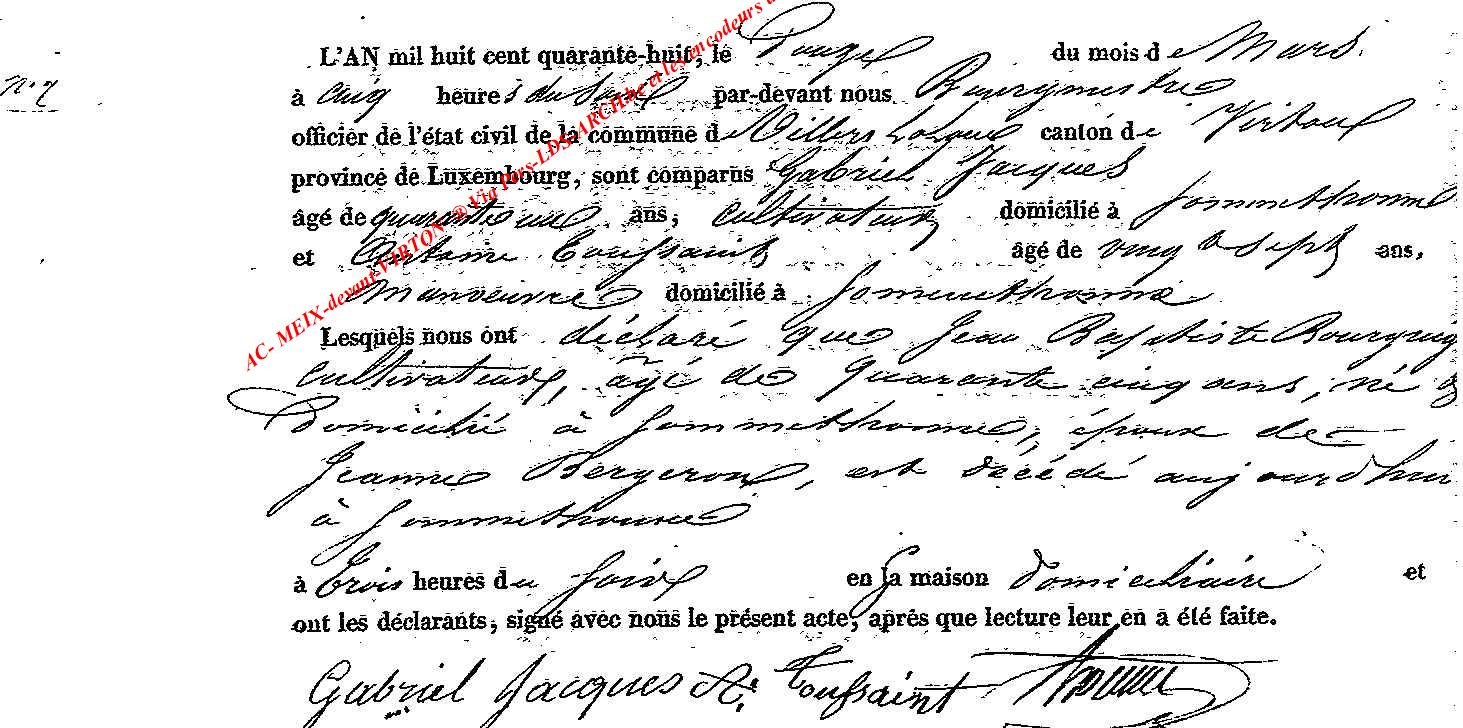 AC- MEIX-devant-VIRTON ® Via Pars-LDS-ARCH.be et les encodeurs
N.° 7
L'AN mil huit cent quarante-huit, le Douze du mois de Mars
à cinq heures du soir par-devant nous Bourgmestre
officier de l'état civil de la commune de Villers Laloue canton de Virton
province de Luxembourg, sont comparus Gabriel Jacques
âgé de quarante un ans, cultivateur domicilié à Sommethonne
et Antoine Toussaint âgé de vingt sept ans,
Manoeuvre domicilié à Sommethonne
Lesquels nous ont déclaré que Jean Baptiste Bourguig
cultivateur, âgé de quarante cinq ans, né &
Domicilié à Sommethonne, époux de
Jeanne Bergeron, est décédé aujourd'hui
à Sommethonne
à Trois heures du soir en sa maison domiciliaire et
ont les déclarants, signé avec nous le présent acte, après que lecture leur en a été faite.
Gabriel Jacques A. Toussaint